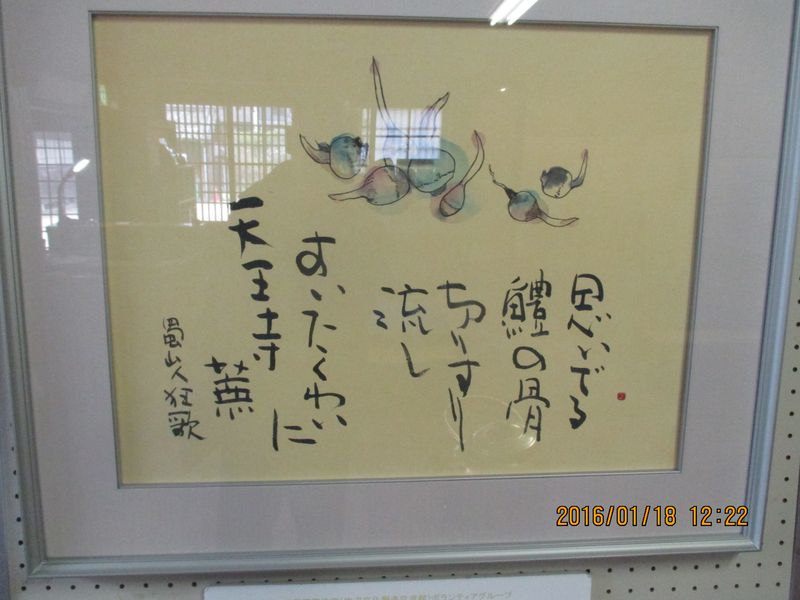 思いでる
鱧の骨
切りすり
流し
すいたくわいに
天王寺
蕪
蜀山人狂歌
2016/01/18 12:22
ボランティアグループ